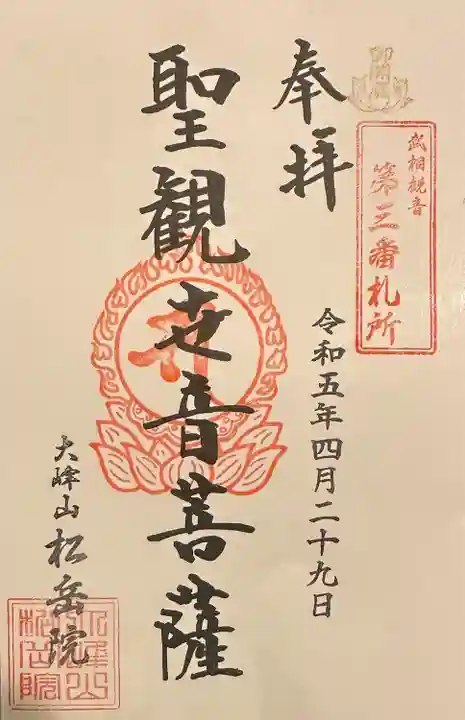 武相観音
第三番札所
奉拝
令和五年四月二十九日
聖観世音菩薩
大峰山 松岳院